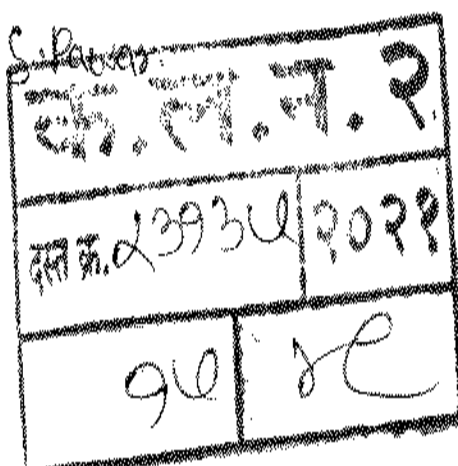 S. Pawar
क.ल.न. २
दस्त क्र. २३१३५ २०२१
१५ ४९